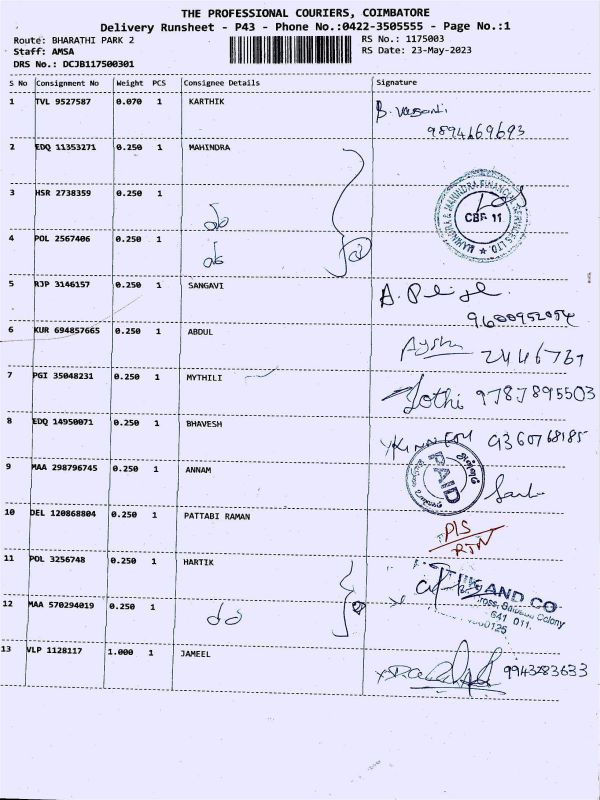 THE PROFESSIONAL COURIERS, COIMBATORE
Delivery Runsheet - P43 - Phone No.:0422-3505555 - Page No.:1
Route: BHARATHI PARK 2 RS No.: 1175003
Staff: AMSA RS Date: 23-May-2023
DRS No.: DCJB117500301
S No Consignment No Weight PCS Consignee Details Signature
1 TVL 9527587 0.070 1 KARTHIK
9894669693
2 EDQ 11353271 0.250 1 MAHINDRA
3 HSR 2738359 0.250 1
MAHINDRA & MAHINDRA FINANCIAL SERVICES LTD.
CBE 11
4 POL 2567406 0.250 1
do
do
5 RJP 3146157 0.250 1 SANGAVI
9600952054
6 KUR 694857665 0.250 1 ABDUL
Aysha 2446767
7 PGI 35048231 0.250 1 MYTHILI
Jothi 9787895503
8 EDQ 14950071 0.250 1 BHAVESH
9360768185
9 MAA 298796745 0.250 1 ANNAM
PAID
10 DEL 120868804 0.250 1 PATTABI RAMAN
DIS
RTN
11 POL 3256748 0.250 1 HARTIK
AND CO
Colony
641 011.
12 MAA 570294019 0.250 1
do
13 VLP 1128117 1.000 1 JAMEEL
9943283633